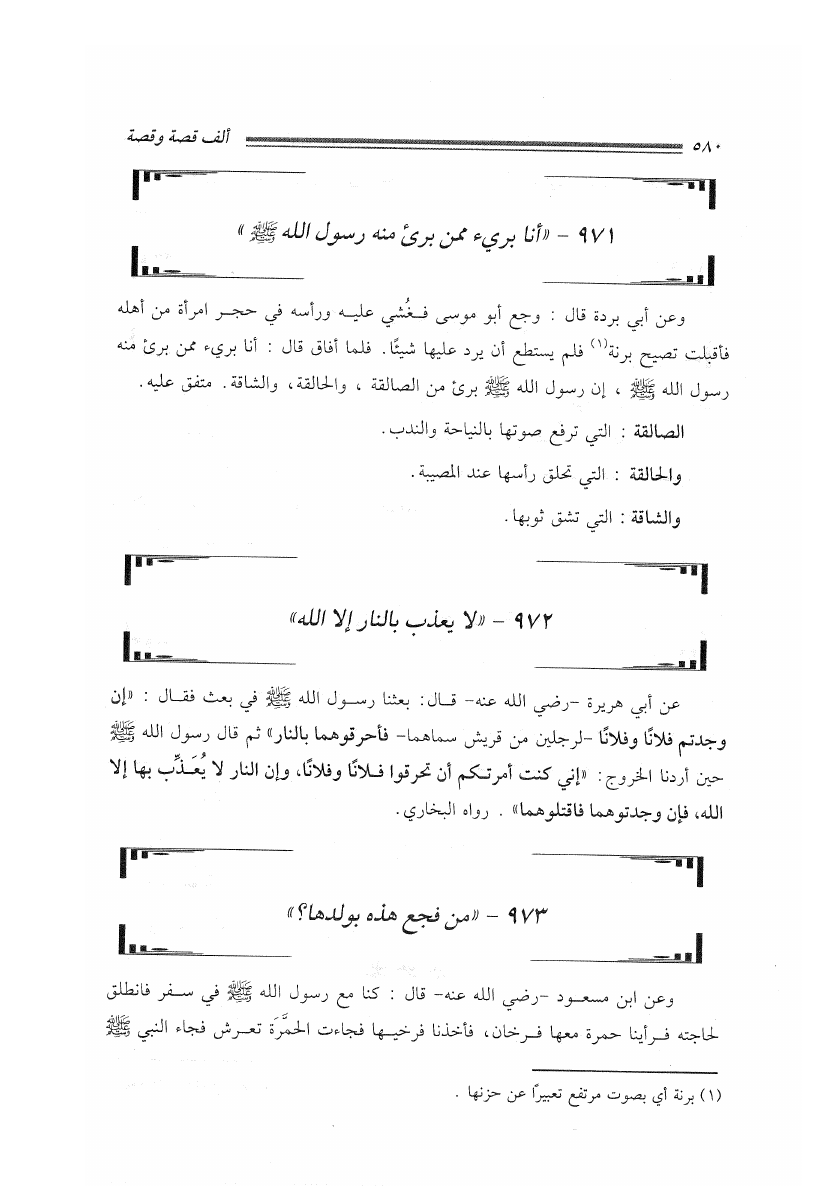 ٥٨٠ ألف قصة وقصة
٩٧١ - «أنا بريء ممن برئ منه رسول الله ﷺ»
وعن أبي بردة قال : وجع أبو موسى فـغُشي عليـه ورأسه في حجـر امرأة من أهله
فأقبلت تصيح برنة(١) فلم يستطع أن يرد عليها شيئًا. فلما أفاق قال : أنا بريء ممن برئ منه
رسول الله ﷺ ، إن رسول الله ﷺ برئ من الصالقة ، والحالقة، والشاقة. متفق عليه.
الصالقة : التي ترفع صوتها بالنياحة والندب.
والحالقة : التي تحلق رأسها عند المصيبة.
والشاقة : التي تشق ثوبها.
٩٧٢ - «لا يعذب بالنار إلا الله»
عن أبي هريرة -رضي الله عنه- قـال: بعثنا رسـول الله ﷺ في بعث فقـال : «إن
وجدتم فلانًا وفلانًا -لرجلين من قريش سماهما- فأحرقوهما بالنار» ثم قال رسول الله ﷺ
حين أردنا الخروج: «إني كنت أمرتـكم أن تحرقوا فـلانًا وفلانًا، وإن النار لا يُعَـذِّب بها إلا
الله، فإن وجدتوهما فاقتلوهما» . رواه البخاري.
٩٧٣ - «من فجع هذه بولدها؟»
وعن ابن مسعـود -رضي الله عنه- قال : كنا مع رسول الله ﷺ في سـفر فانطلق
لحاجته فـرأينا حمرة معها فـرخان، فأخذنا فرخيـها فجاءت الحمَّرَة تعـرش فجاء النبي ﷺ
(١) برنة أي بصوت مرتفع تعبيرًا عن حزنها .